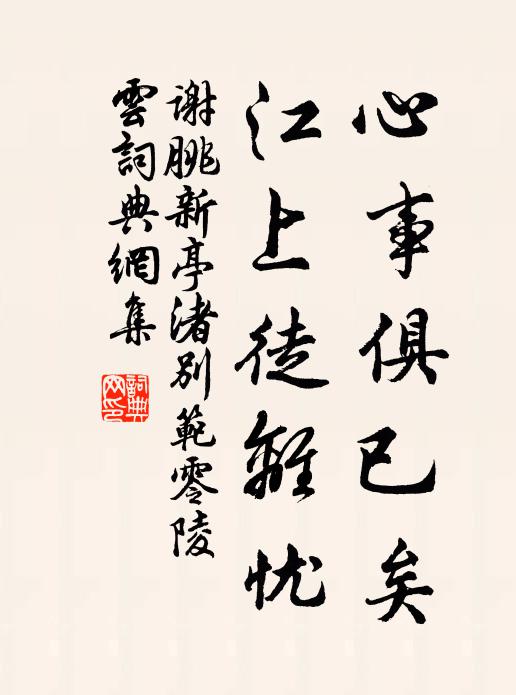 心事俱已矣
江上徒離忧
谢朓新亭渚别範零陵
雲詞典網集
詞典网印